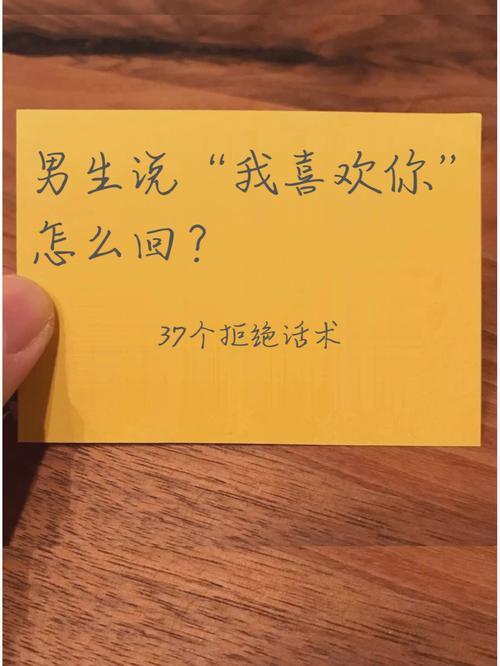 男生说“我喜欢你”
怎么回？
37个拒绝话术